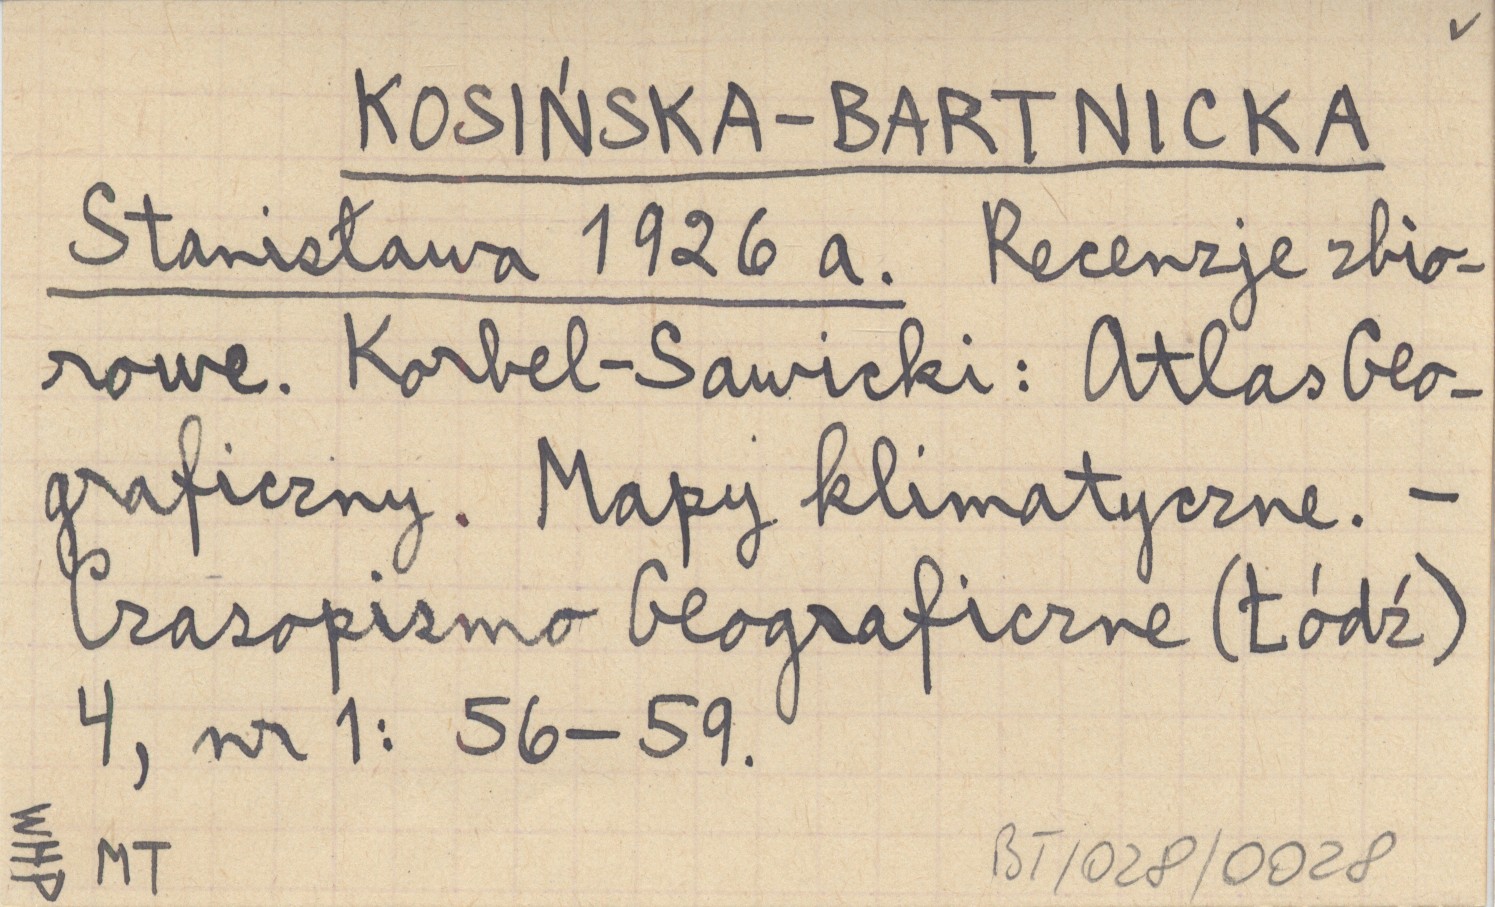 ✓
KOSIŃSKA-BARTNICKA
Stanisława 1926 a. Recenzje zbio-
rowe. Korbel-Sawicki: Atlas Geo-
graficzny. Mapy klimatyczne. –
Czasopismo Geograficzne (Łódź)
4, nr 1: 56–59.
WHP
MT
BT/028/0028